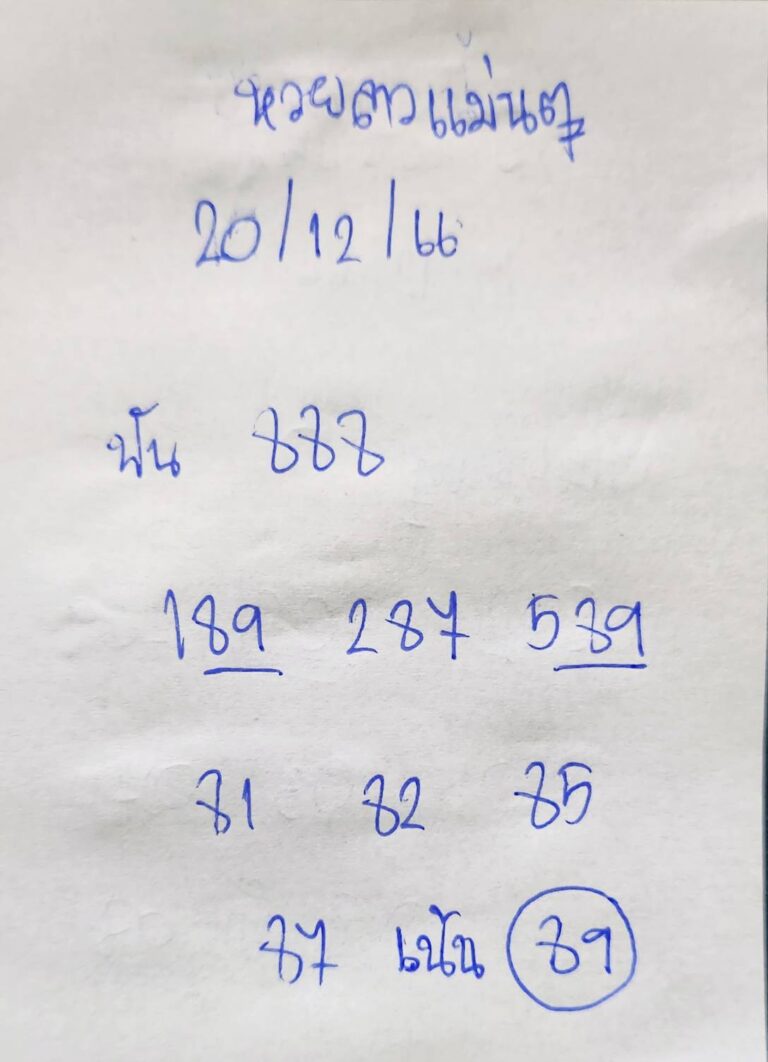 หวยลาวแม่นตู
20/12/66
ฟัน 888
189 287 589
81 82 85
87 เน้น 89